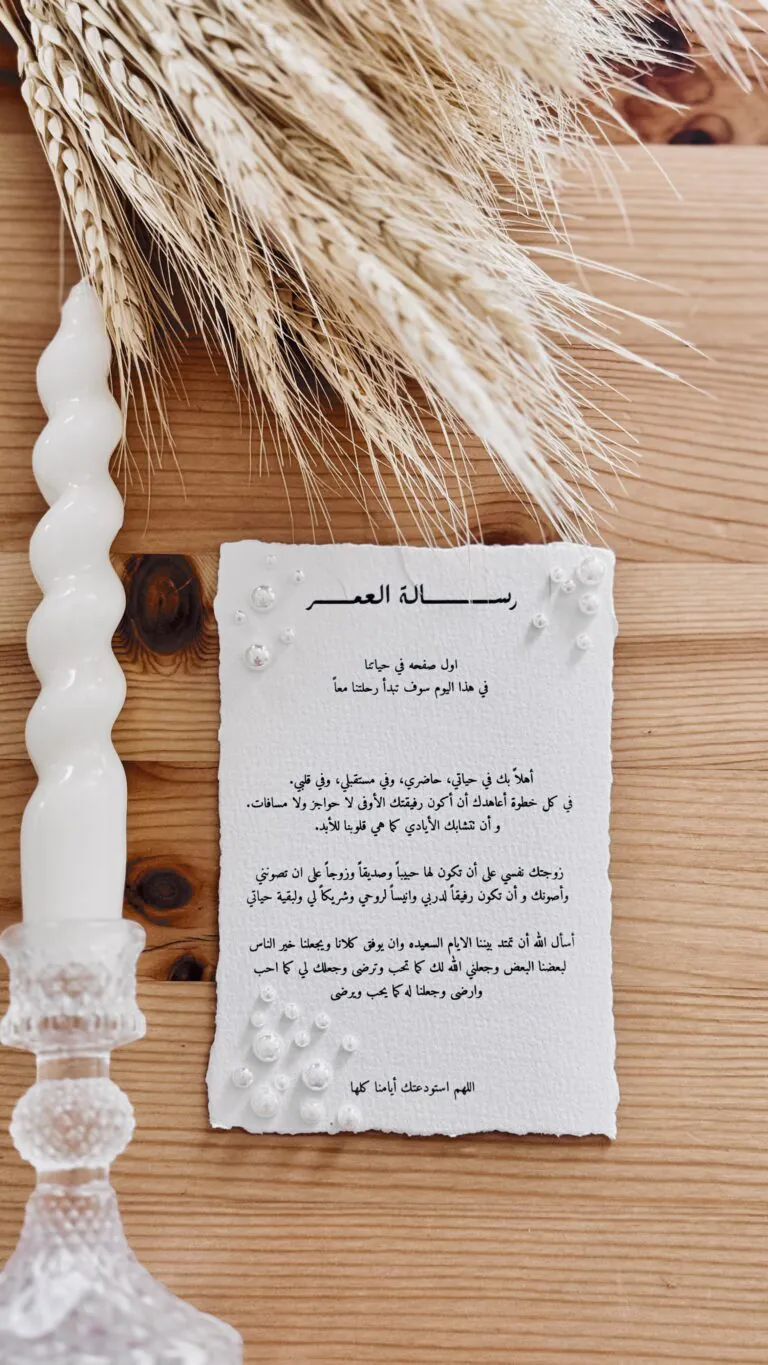 رســـالة العمـــر
اول صفحه في حياتنا
في هذا اليوم سوف تبدأ رحلتنا معاً
أهلاً بك في حياتي، حاضري، وفي مستقبلي، وفي قلبي.
في كل خطوة أعاهدك أن أكون رفيقتك الأوفى لا حواجز ولا مسافات.
و أن نتشابك الأيادي كما هي قلوبنا للأبد.
زوجتك نفسي على أن تكون لها حبيباً وصديقاً وزوجاً على ان تصونني
وأصونك و أن تكون رفيقاً لدربي وانيساً لروحي وشريكاً لي ولبقية حياتي
أسأل الله أن تمتد بيننا الايام السعيده وان يوفق كلانا ويجعلنا خير الناس
لبعضنا البعض وجعلني الله لك كما تحب وترضى وجعلك لي كما احب
وارضى وجعلنا له كما يحب ويرضى
اللهم استودعتك أيامنا كلها